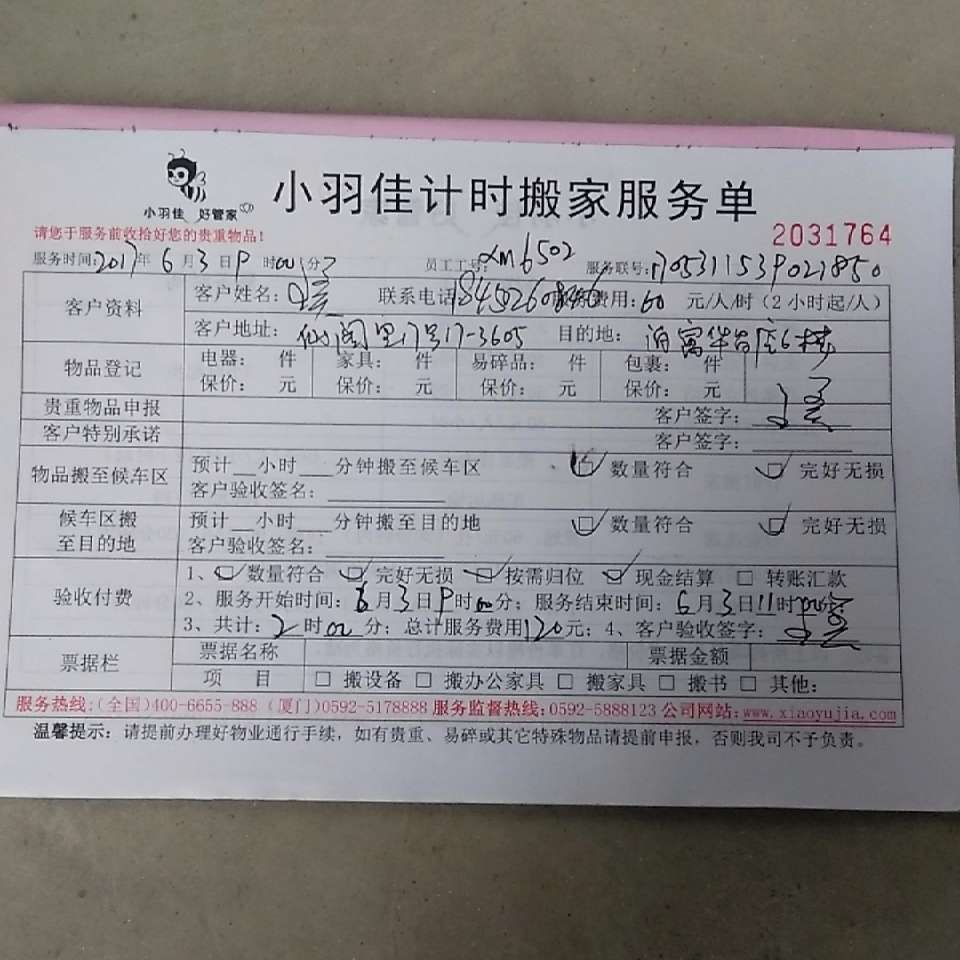 小羽佳 好管家
小羽佳计时搬家服务单
请您于服务前收拾好您的贵重物品！
2031764
服务时间：2017年6月3日9时00分 员工工号：xm6502 服务联号：1705311539021850
客户资料 客户姓名： 联系电话 服务费用：60 元/人/时（2小时起/人）
客户地址：仙阁里17号17-3605 目的地：
物品登记 电器： 件 家具： 件 易碎品： 件 包裹： 件
保价： 元 保价： 元 保价： 元 保价： 元
贵重物品申报 客户签字：
客户特别承诺 客户签字：
物品搬至候车区 预计__小时___分钟搬至候车区 数量符合 完好无损
客户验收签名：
候车区搬至目的地 预计__小时___分钟搬至目的地 数量符合 完好无损
客户验收签名：
验收付费 1、数量符合 完好无损 按需归位 现金结算 □ 转账汇款
2、服务开始时间：6月3日9时00分；服务结束时间：6月3日11时00分
3、共计：2时00分；总计服务费用120元；4、客户验收签字：
票据栏 票据名称 票据金额
项 目 □ 搬设备 □ 搬办公家具 □ 搬家具 □ 搬书 □ 其他：
服务热线：(全国)400-6655-888 (厦门)0592-5178888 服务监督热线：0592-5888123 公司网站：www.xiaoyujia.com
温馨提示：请提前办理好物业通行手续，如有贵重、易碎或其它特殊物品请提前申报，否则我司不予负责。